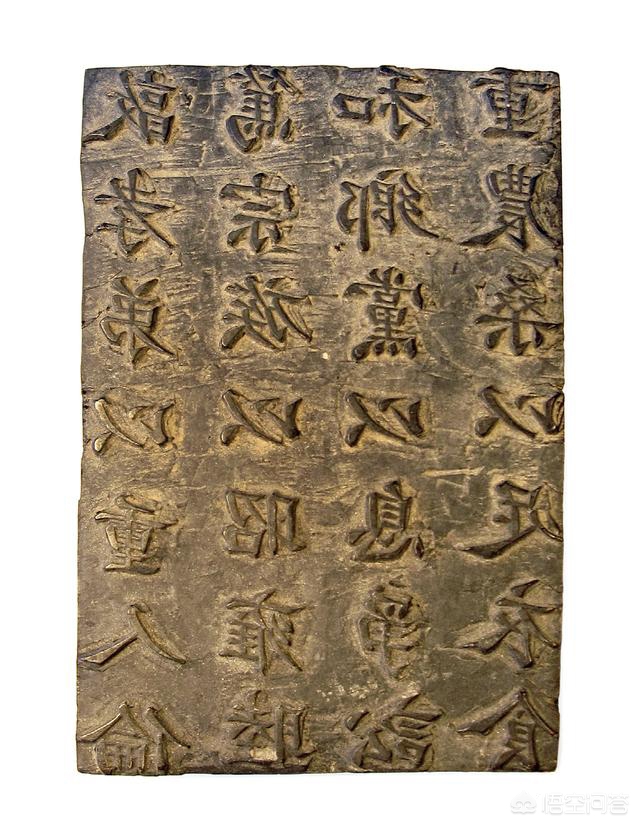 敦孝弟以人倫
篤宗族以昭雍睦
和鄉黨以息爭訟
重農桑以足衣食
悟空问答